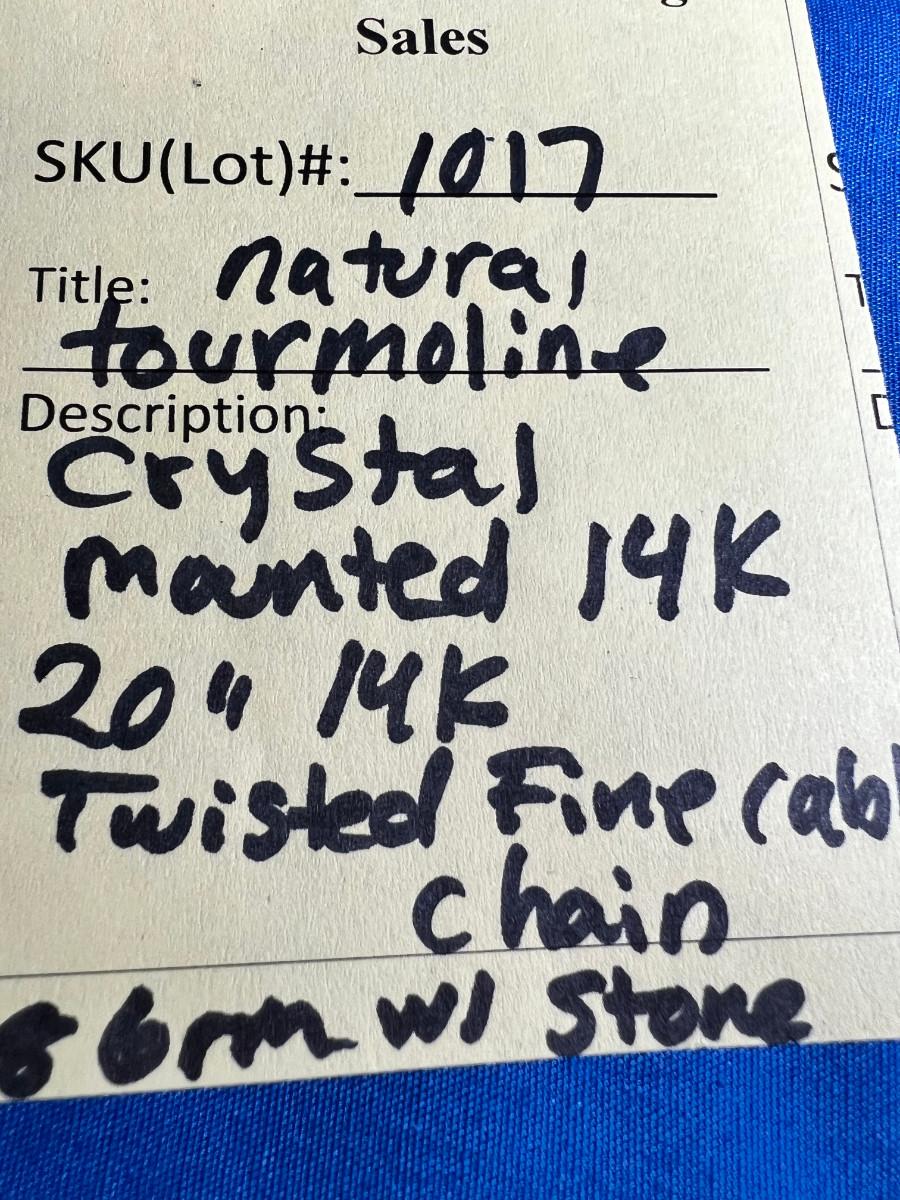 Sales
SKU(Lot)#: 1017
Title: natural
tourmoline
Description:
Crystal
mounted 14K
20" 14K
Twisted Fine Cabl
Chain
w/ Stone